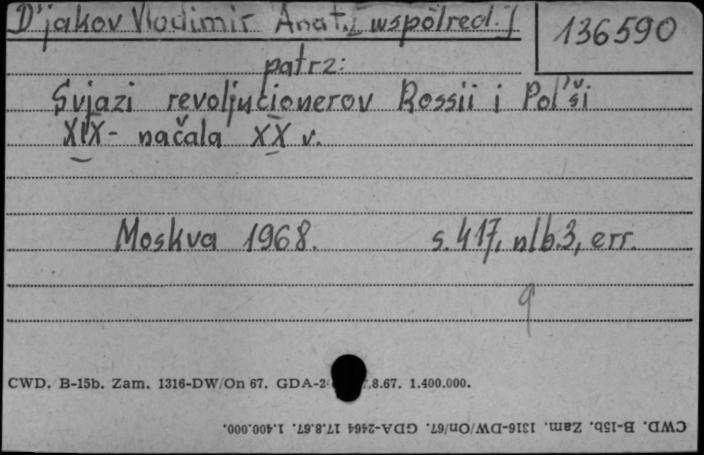 D'jakov Vladimir Anat. [wspólred.]
136590
patrz:
Svjazi revoljucionerov Rossii i Pol'ši
XIX - načala XX v.
Moskva 1968. s. 417, nlb. 3, err.
9
CWD. B-15b. Zam. 1316-DW/On 67. GDA-2 .8.67. 1.400.000.
CWD. B-15b. Zam. 1316-DW/On/67. GDA-2464 17.8.67. 1.400.000.